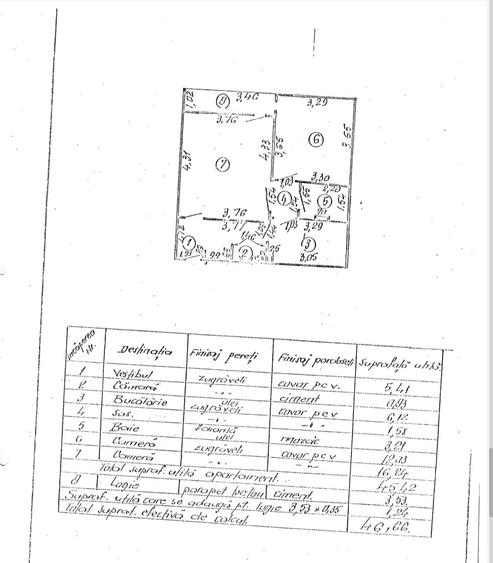 8
3,46
1,02
3,29
3,76
6
4,31
7
4,33
3,65
3,55
3,30
1,03
2,20
1,54
4
1,55
5
1,54
3,76
3,77
3,29
1
2
3
3,05
Încăperea Nr. Destinația Finisaj pereți Finisaj pardoseli Suprafață utilă
1 Vestibul zugrăveli covor pcv. 5,41
2 Cămară -"- ciment 0,83
3 Bucătărie ulei zugrăveli covor pcv 6,12
4 Sas. -"- -"- 1,58
5 Baie faianță ulei mozaic 3,21
6 Cameră zugrăveli covor pcv 12,03
7 Cameră -"- -"- 16,24
Total supraf. utilă apartament 45,42
8 Logie parapet beton ciment. 3,53
Supraf. utilă care se adaugă pt. logie 3,53 x 0,35 1,24
Total supraf. efectivă de calcul 46,66.